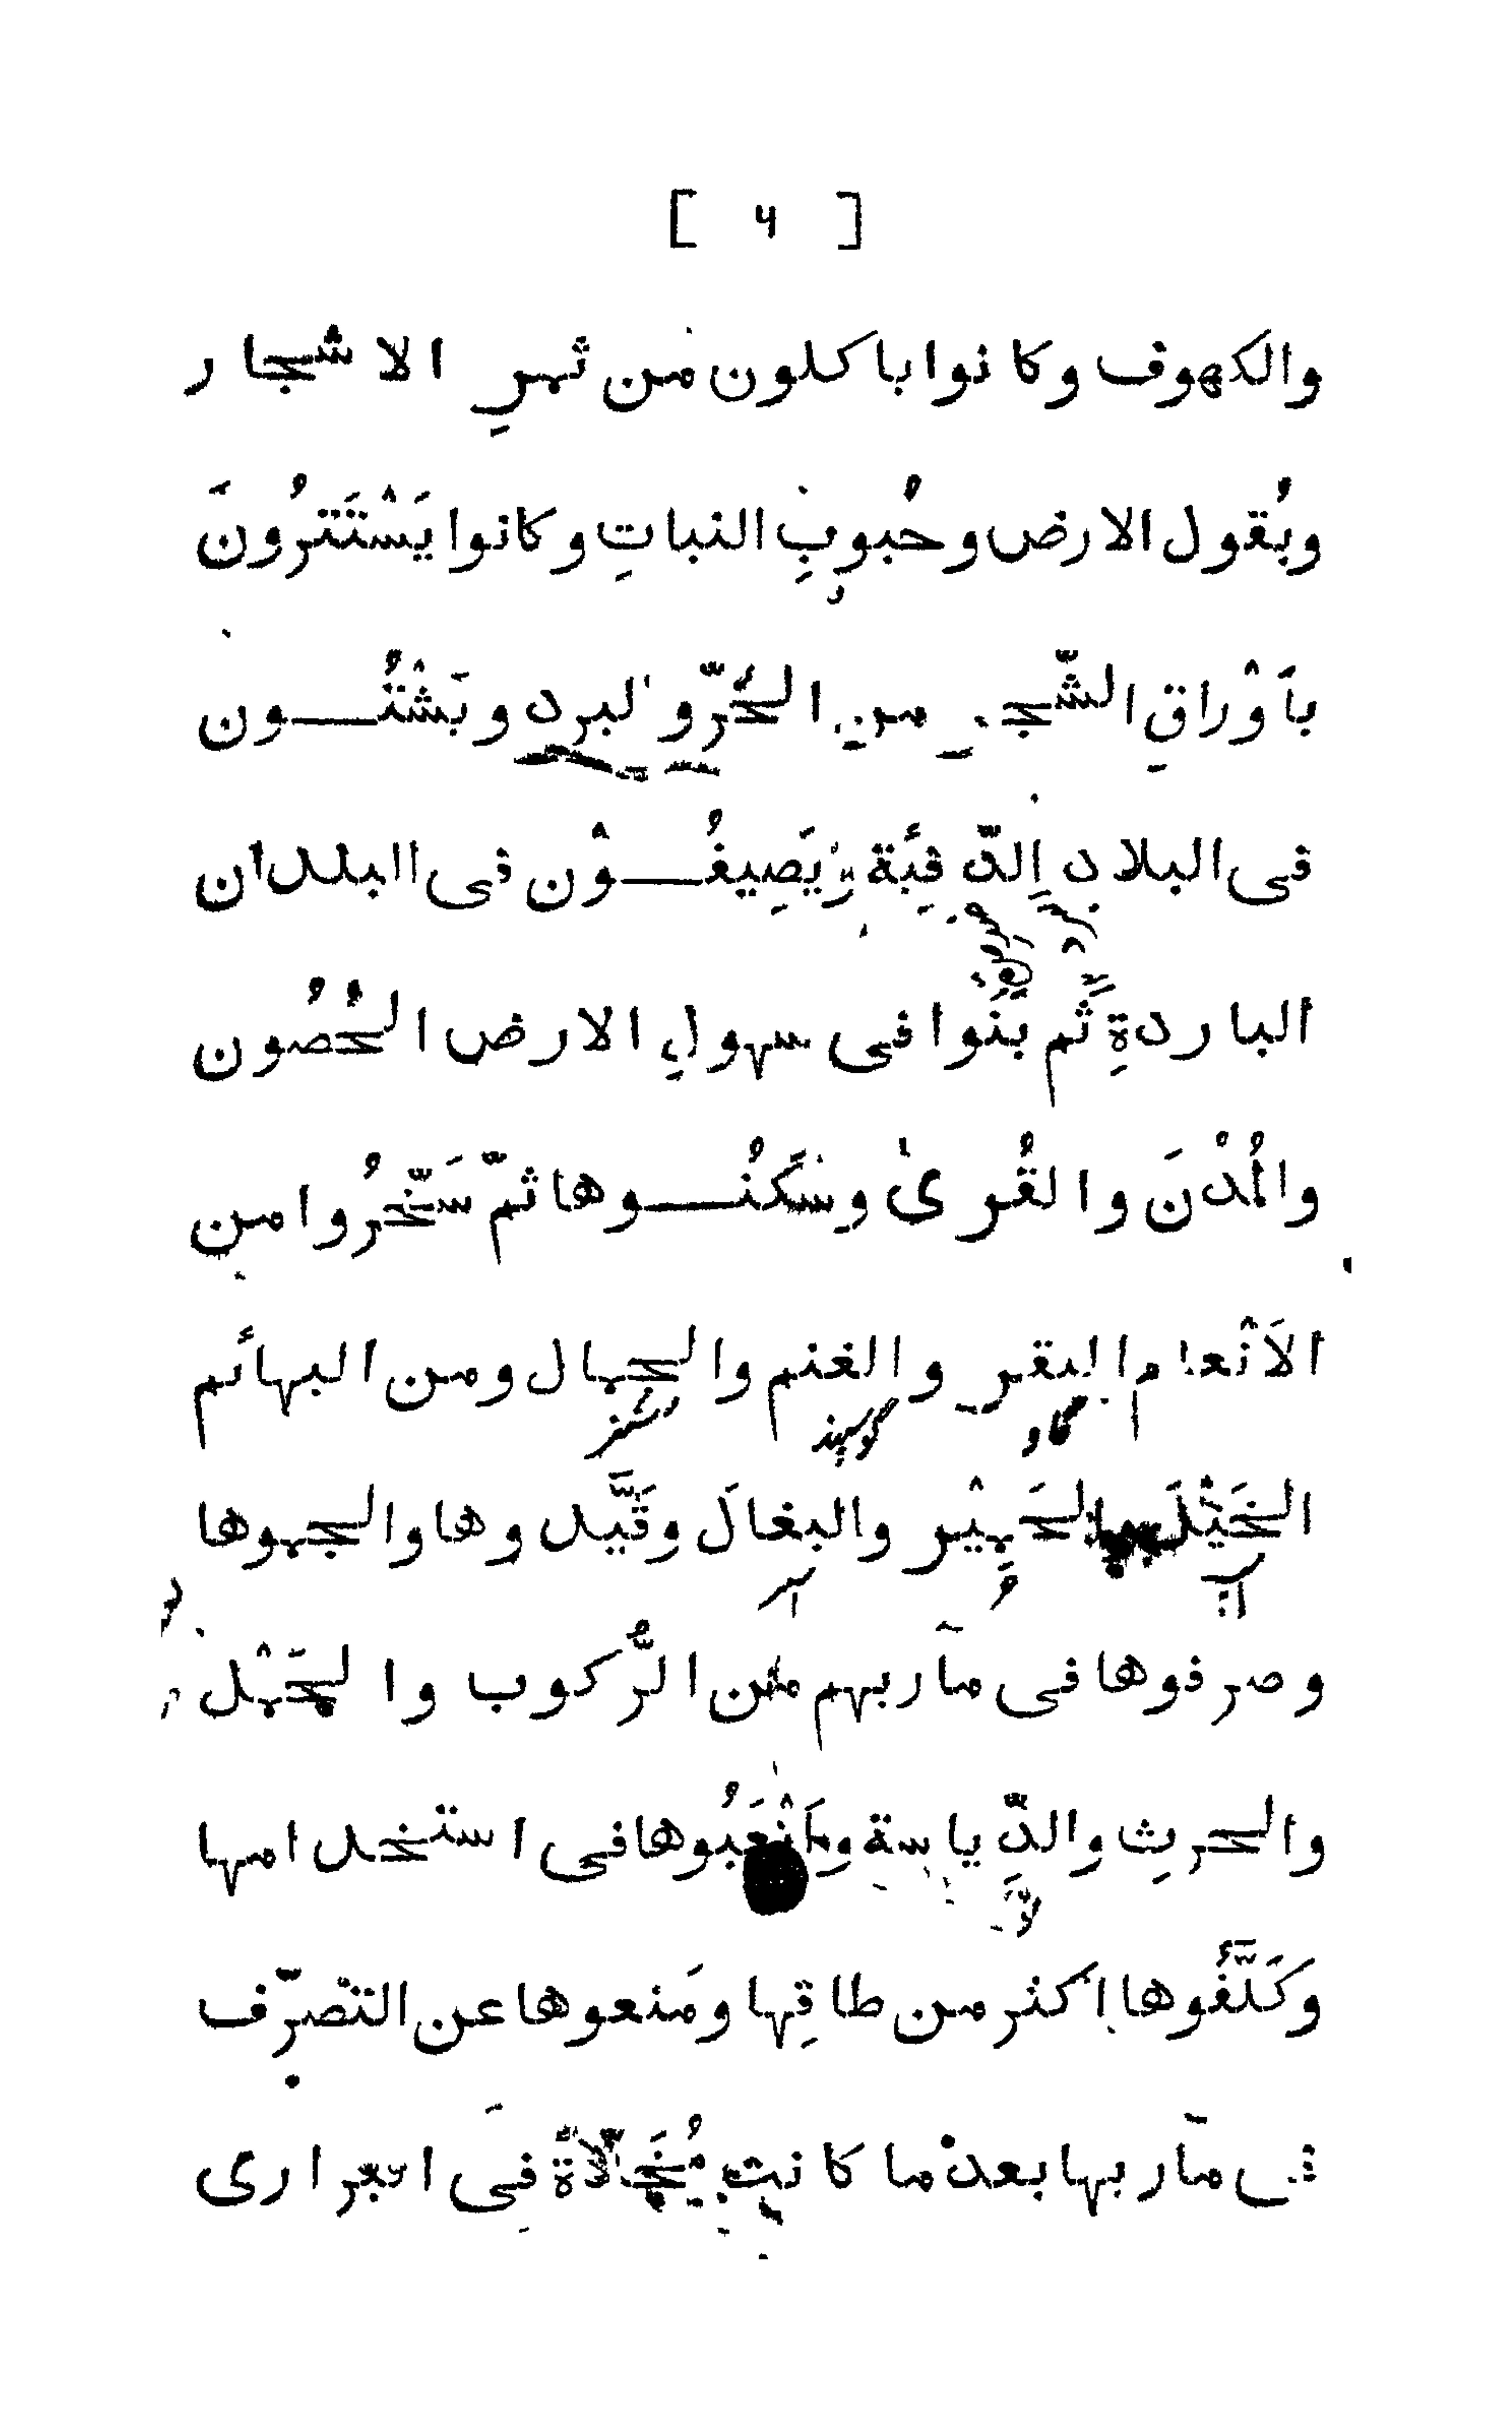 [ ۴ ]
والكهوف وكانوا ياكلون من ثمرِ الاشجار
وبُقول الارض وحُبوبِ النباتِ وكانوا يَسْتَتِرُونَ
بأَوْراقِ الشّجرِ من الحَرّ والبرد ويَشْتُون
فى البلادِ الدّفِئَة ويَصِيفُوْن فى البلدان
الباردةِ ثم بَنَوا فى سهولِ الارض الحُصُون
والمُدْنَ والقُرىٰ وسَكَنُوها ثمّ سَخّرُوا من
الاَنْعام البقر والغنم والجمال ومن البهائم
گاو گوسپند شتر
الخَيْلَ والحَمِيْر والبغالَ وقَيَّدوها والجموها
وصرفوها فى مآربهم من الرُّكوب والحَمْل
والحرثِ والدِّياسة واَتْعَبُوها فى استخدامها
وكَلَّفُوها اكثر من طاقِتها ومَنعوها عن التصرّف
فى مآربها بعدْ ما كانت مُخَلّاةً فى البرارى